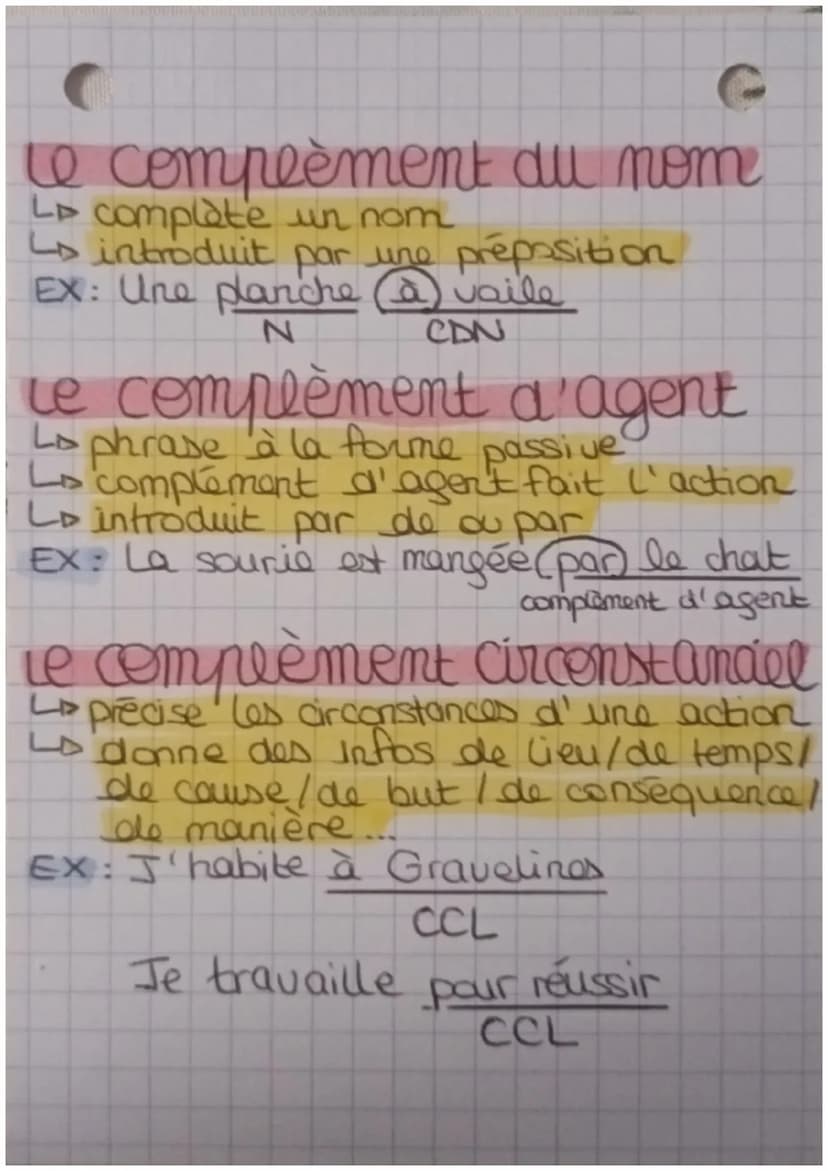 Le complèment du nom
↳ complète un nom
↳ introduit par une préposition
EX: Une planche à voile
N CDN
Le complèment d'agent
↳ phrase à la forme passive
↳ complément d'agent fait l'action
↳ introduit par de ou par
EX: La sourie est mangée par le chat
complément d'agent
Le complèment circonstanciel
↳ précise les circonstances d'une action
↳ donne des infos de lieu/de temps/
de cause/de but/de conséquence/
de manière...
EX: J'habite à Gravelines
CCL
Je travaille pour réussir
CCL